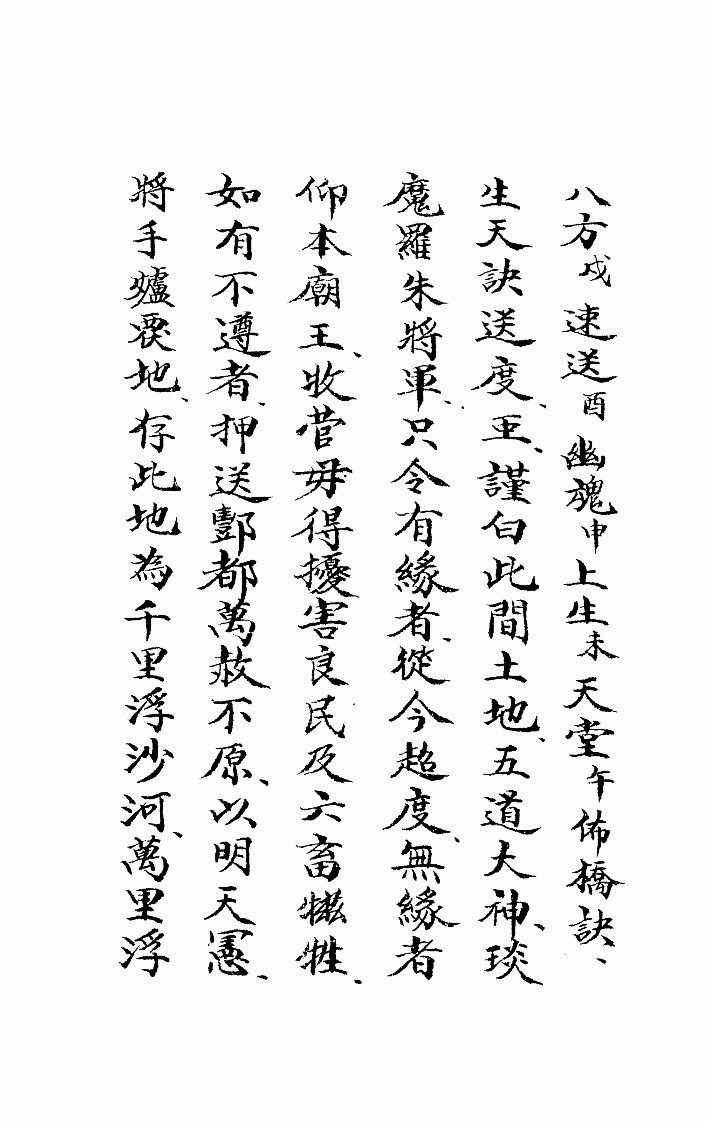 八方戌速送酉幽魂申上生未天堂午佈橋訣、
生天訣送度、亞、謹白此間土地、五道大神、琰
魔羅朱將軍、只令有緣者、從今超度、無緣者
仰本廟王、收營毋得擾害良民及六畜犠牲、
如有不遵者、押送酆都萬赦不原、以明天憲、
將手爐地、存此地為千里浮沙河、萬里浮